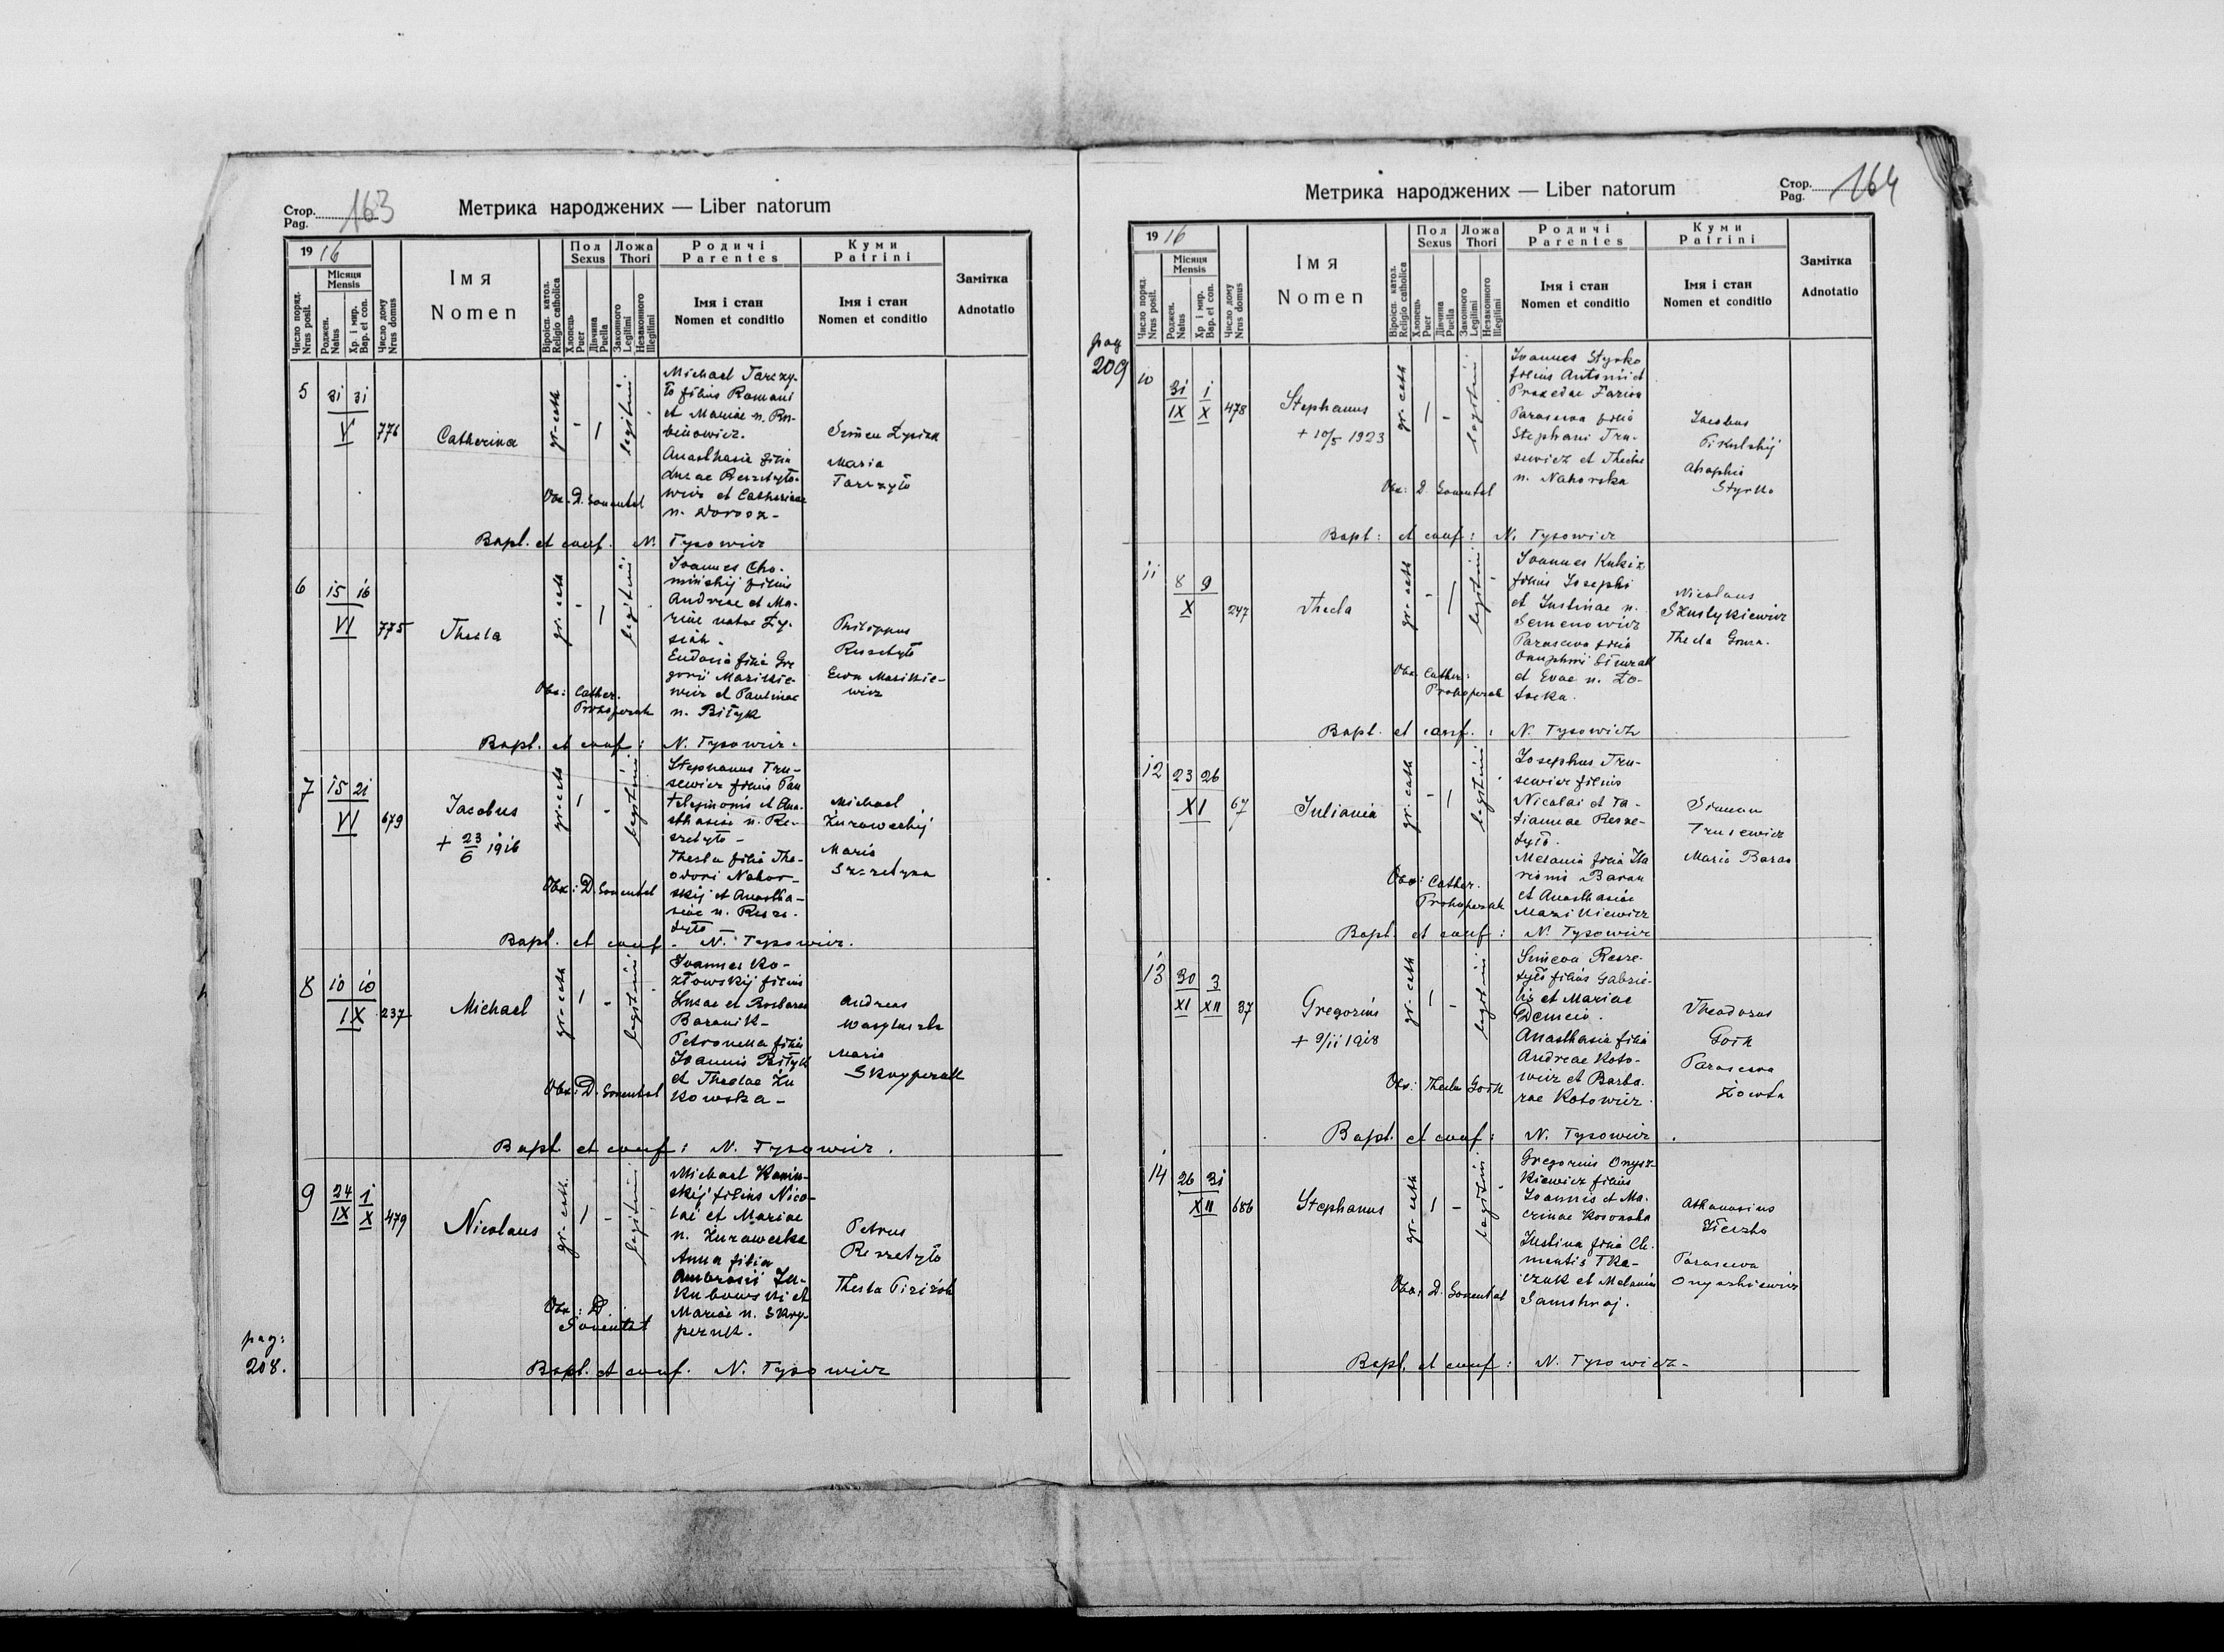 Стор. 163
Pag.
Метрика народжених — Liber natorum
19 16
Число поряд. Nrus posit.
Місяця Mensis
Роджен. Natus
Хр. і мир. Bap. et con.
Число дому Nrus domus
Імя
Nomen
Віроісп. катол. Religio catholica
Пол Sexus
Хлопець Puer
Дівчина Puella
Ложа Thori
Законного Legitimi
Незаконного Illegitimi
Родичі
Parentes
Імя і стан
Nomen et conditio
Куми
Patrini
Імя і стан
Nomen et conditio
Замітка
Adnotatio
5
31 31
V
776
Catherina
gr-cath
- 1
legitimi
Michael Tarczy-
ło filius Romani
et Mariae n.
Anasthasia filia
Lucae Reszetyło-
wicz et Catherinae
n.
Simeon Zysiak
Maria
Tarczyło
Obs. D. Sonental
Bapt. et conf. N. Tysowicz
6
15 16
VI
775
Thecla
gr-cath
- 1
legitimi
Ioannes Cho-
minskij filius
Andreae et Ma-
riae natae Zy-
siak -
Eudocia filia Gre
gorii Mazikie-
wicz et Paulinae
n. Biłyk
Philippus
Reszetyło
Ewa Mazikie-
wicz
Obs: Cather.
Prokoperak
Bapt. et conf: N. Tysowicz.
7
15 21
VI
679
Iacobus
+ 23/6 1916
gr-cath
1 -
legitimi
Stephanus Tru-
sewicz filius Pan
teleymonis et Ana-
sthasiae n. Re-
szetyło -
Thecla filia The-
odori Nahor-
skij et Anastha-
siae n. Resze-
tyło
Michael
Żuraweckij
Maria
Obs: D. Sonental
Bapt. et conf. - N. Tysowicz.
8
10 10
IX
237
Michael
gr-cath
1 -
legitimi
Ioannes Ko-
złowskij filius
Lucae et Barbarae
Baranik -
Petronella filia
Ioannis Biłyk
et Theclae Żu
kowska -
Andreas
Maria
Skoyperak
Obs: D. Sonental
Bapt. et conf: N. Tysowicz.
9
24 1
IX X
479
Nicolaus
gr-cath.
1 -
legitimi
Michael Kamin-
skij filius Nico-
lai et Mariae
n. Żuraweska
Anna filia
Ambrosii Ja-
kubowski et
Mariae n. Skoy-
perak.
Petrus
Reszetyło
Thecla
Obs: D.
Sonental
pag:
208.
Bapt. et conf. N. Tysowicz
Метрика народжених — Liber natorum
Стор. 164
Pag.
19 16
Число поряд. Nrus posit.
Місяця Mensis
Роджен. Natus
Хр. і мир. Bap. et con.
Число дому Nrus domus
Імя
Nomen
Віроісп. катол. Religio catholica
Пол Sexus
Хлопець Puer
Дівчина Puella
Ложа Thori
Законного Legitimi
Незаконного Illegitimi
Родичі
Parentes
Імя і стан
Nomen et conditio
Куми
Patrini
Імя і стан
Nomen et conditio
Замітка
Adnotatio
pag
209
10
31 1
IX X
478
Stephanus
+ 10/5 1923
gr-cath
1 -
legitimi
Ioannes Styrko
filius Antonii et
Praxedae
Parascewa filia
Stephani Tru-
sewicz et Theclae
n. Nahorska
Iacobus
Pikulskij
Styrko
Obs: D. Sonental
Bapt: et conf: N. Tysowicz
11
8 9
X
247
Thecla
gr-cath
- 1
legitimi
Ioannes Kukiz
filius Iosephi
et Iustinae n.
Semenowicz
Parascewa filia
et Evae n. Zo-
Nicolaus
Szustykiewicz
Thecla
Obs. Cather:
Prokoperak
Bapt. et conf.: N. Tysowicz
12
23 26
XI
67
Iuliania
gr-cath
- 1
legitimi
Iosephus Tru-
sewicz filius
Nicolai et Ta-
tiannae Resze-
tyło.
Melania filia Ila
rionis Baran
et Anasthasiae
Mazikiewicz
Simeon
Trusewicz
Maria Baran
Obs: Cather.
Prokoperak
Bapt. et conf: N. Tysowicz
13
30 3
XI XII
37
Gregorius
+ 9/11 1918
gr-cath
1 -
legitimi
Simeon Resze-
tyło filius Gabrie-
lis et Mariae
Anasthasia filia
Andreae Koto-
wicz et Barba-
rae Kotowicz.
Theodorus
Goik
Parascewa
Obs: Thecla Goik
Bapt. et conf: N. Tysowicz.
14
26 31
XII
686
Stephanus
gr-cath
1 -
legitimi
Gregorius Onysz-
kiewicz filius
Ioannis et Ma-
crinae
Iustina filia Cle-
mentis Tka-
czuk et Melaniae
Samohraj.
Athanasius
Parascewa
Onyszkiewicz
Obs: D. Sonental
Bapt. et conf: N. Tysowicz -